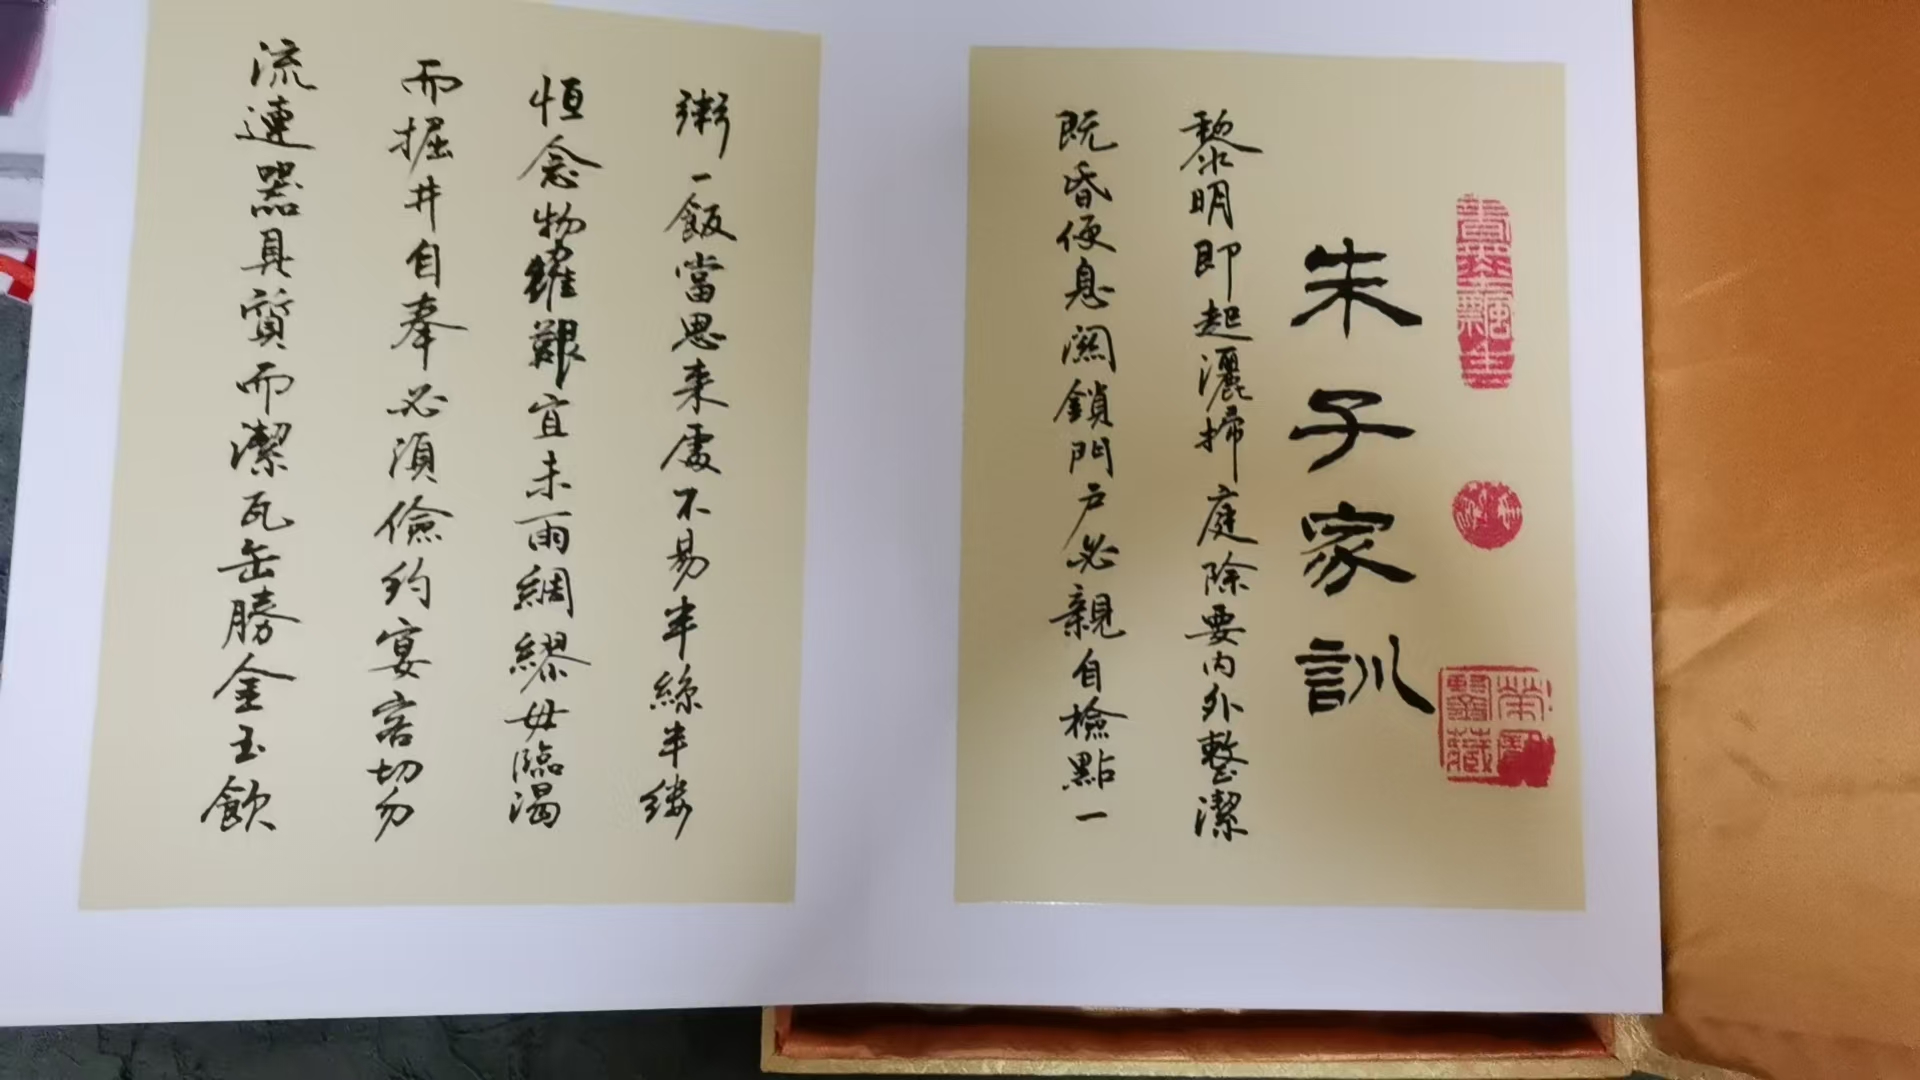 朱子家訓
黎明即起灑掃庭除要内外整潔
既昏便息關鎖門户必親自檢點一
粥一飯當思来處不易半絲半縷
恒念物維艱宜未雨綢繆毋臨渴
而掘井自奉必須儉約宴客切勿
流連器具質而潔瓦缶勝金玉飲